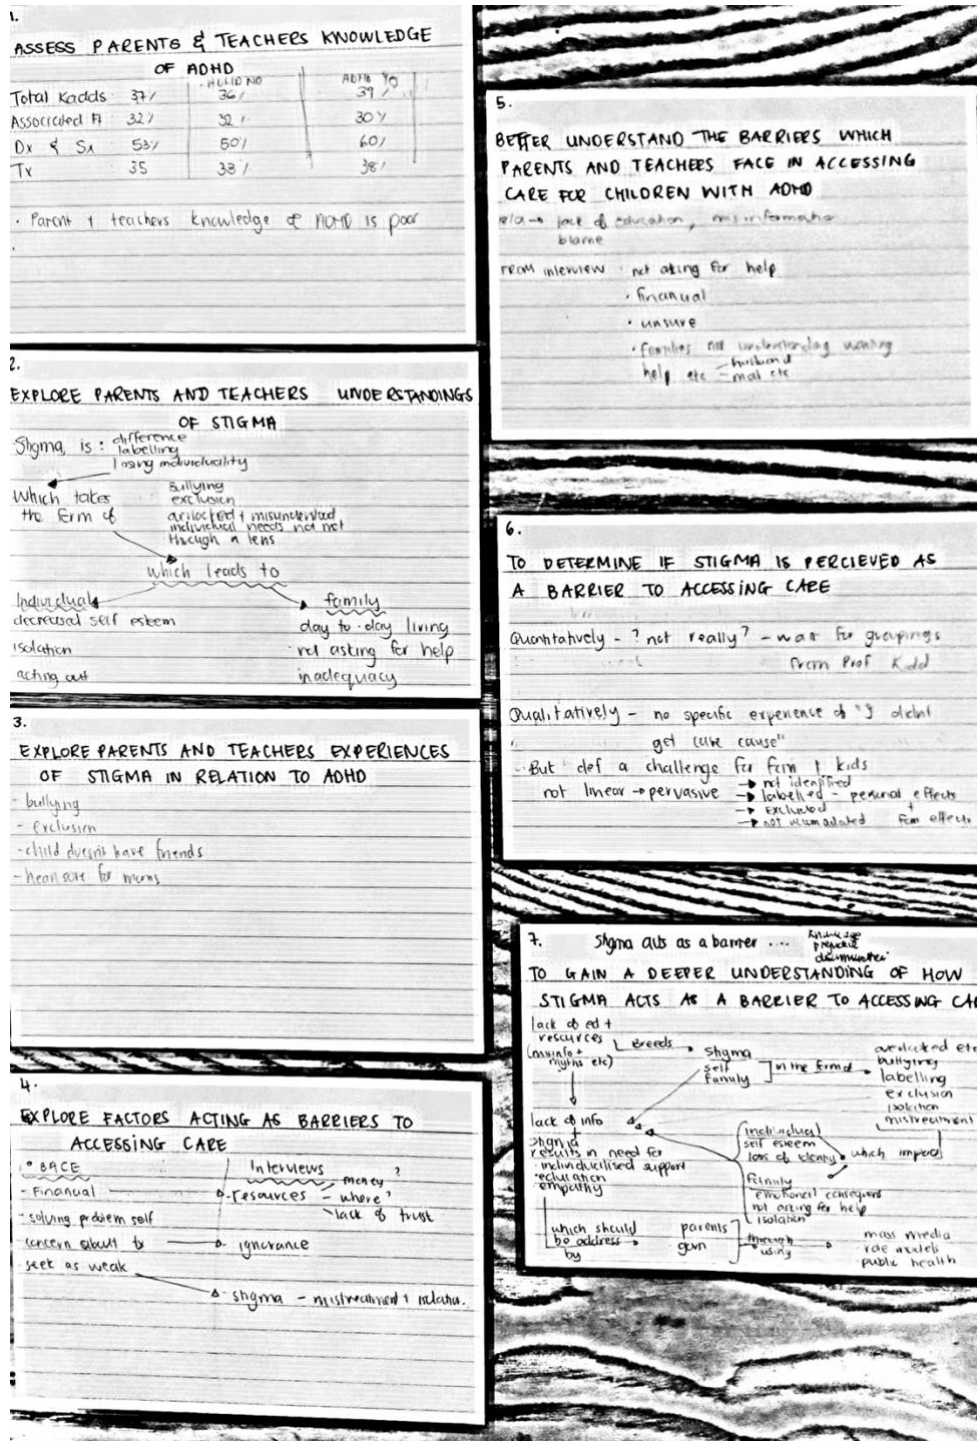 1.
ASSESS PARENTS & TEACHERS KNOWLEDGE
OF ADHD
ADHD NO ADHD YO
Total Kadds 37% 36% 39%
Associated 32% 32% 30%
Dx & Sx 53% 50% 60%
Tx 35 33% 38%
· Parent + teachers knowledge of ADHD is poor
2.
EXPLORE PARENTS AND TEACHERS UNDERSTANDINGS
OF STIGMA
Stigma is : difference
labelling
losing individuality
Which takes
the form of
Bullying
exclusion
misunderstood
individual needs not met
through a lens
which leads to
Individual
decreased self esteem
isolation
acting out
family
day to day living
not asking for help
inadequacy
3.
EXPLORE PARENTS AND TEACHERS EXPERIENCES
OF STIGMA IN RELATION TO ADHD
- bullying
- exclusion
- child doesn't have friends
- heart sore for mums
4.
EXPLORE FACTORS ACTING AS BARRIERS TO
ACCESSING CARE
BACE
- Financial
- solving problem self
- concern about tx
- seek as weak
Interviews ?
money
resources - where?
lack of trust
ignorance
stigma - mistreatment + isolation
5.
BETTER UNDERSTAND THE BARRIERS WHICH
PARENTS AND TEACHERS FACE IN ACCESSING
CARE FOR CHILDREN WITH ADHD
lack of education, misinformation
blame
From interview · not asking for help
· financial
· unsure
· families not understanding wanting
help etc - husband
- mat etc
6.
TO DETERMINE IF STIGMA IS PERCIEVED AS
A BARRIER TO ACCESSING CARE
Quantitatively - ? not really? - wait for groupings
from Prof Kidd
Qualitatively - no specific experience of "I didnt
get care cause"
But def a challenge for fam + kids
not linear → pervasive → not identified
→ labelled - personal effects
→ excluded +
→ not accomadated fam effects
7. Stigma acts as a barrier .... Knowledge
prejudice
TO GAIN A DEEPER UNDERSTANDING OF HOW
STIGMA ACTS AS A BARRIER TO ACCESSING CA
lack of ed +
resources
(misinfo +
myths etc)
breeds
stigma
self
family
in the form of
overlooked etc
bullying
labelling
exclusion
isolation
mistreatment
which impact
individual
self esteem
loss of identity
family
emotional
not asking for help
isolation
lack of info
+
stigma
results in need for
· individuilised support
· education
empathy
which should
be address
by
parents
govn
through
using
mass media
role models
public health